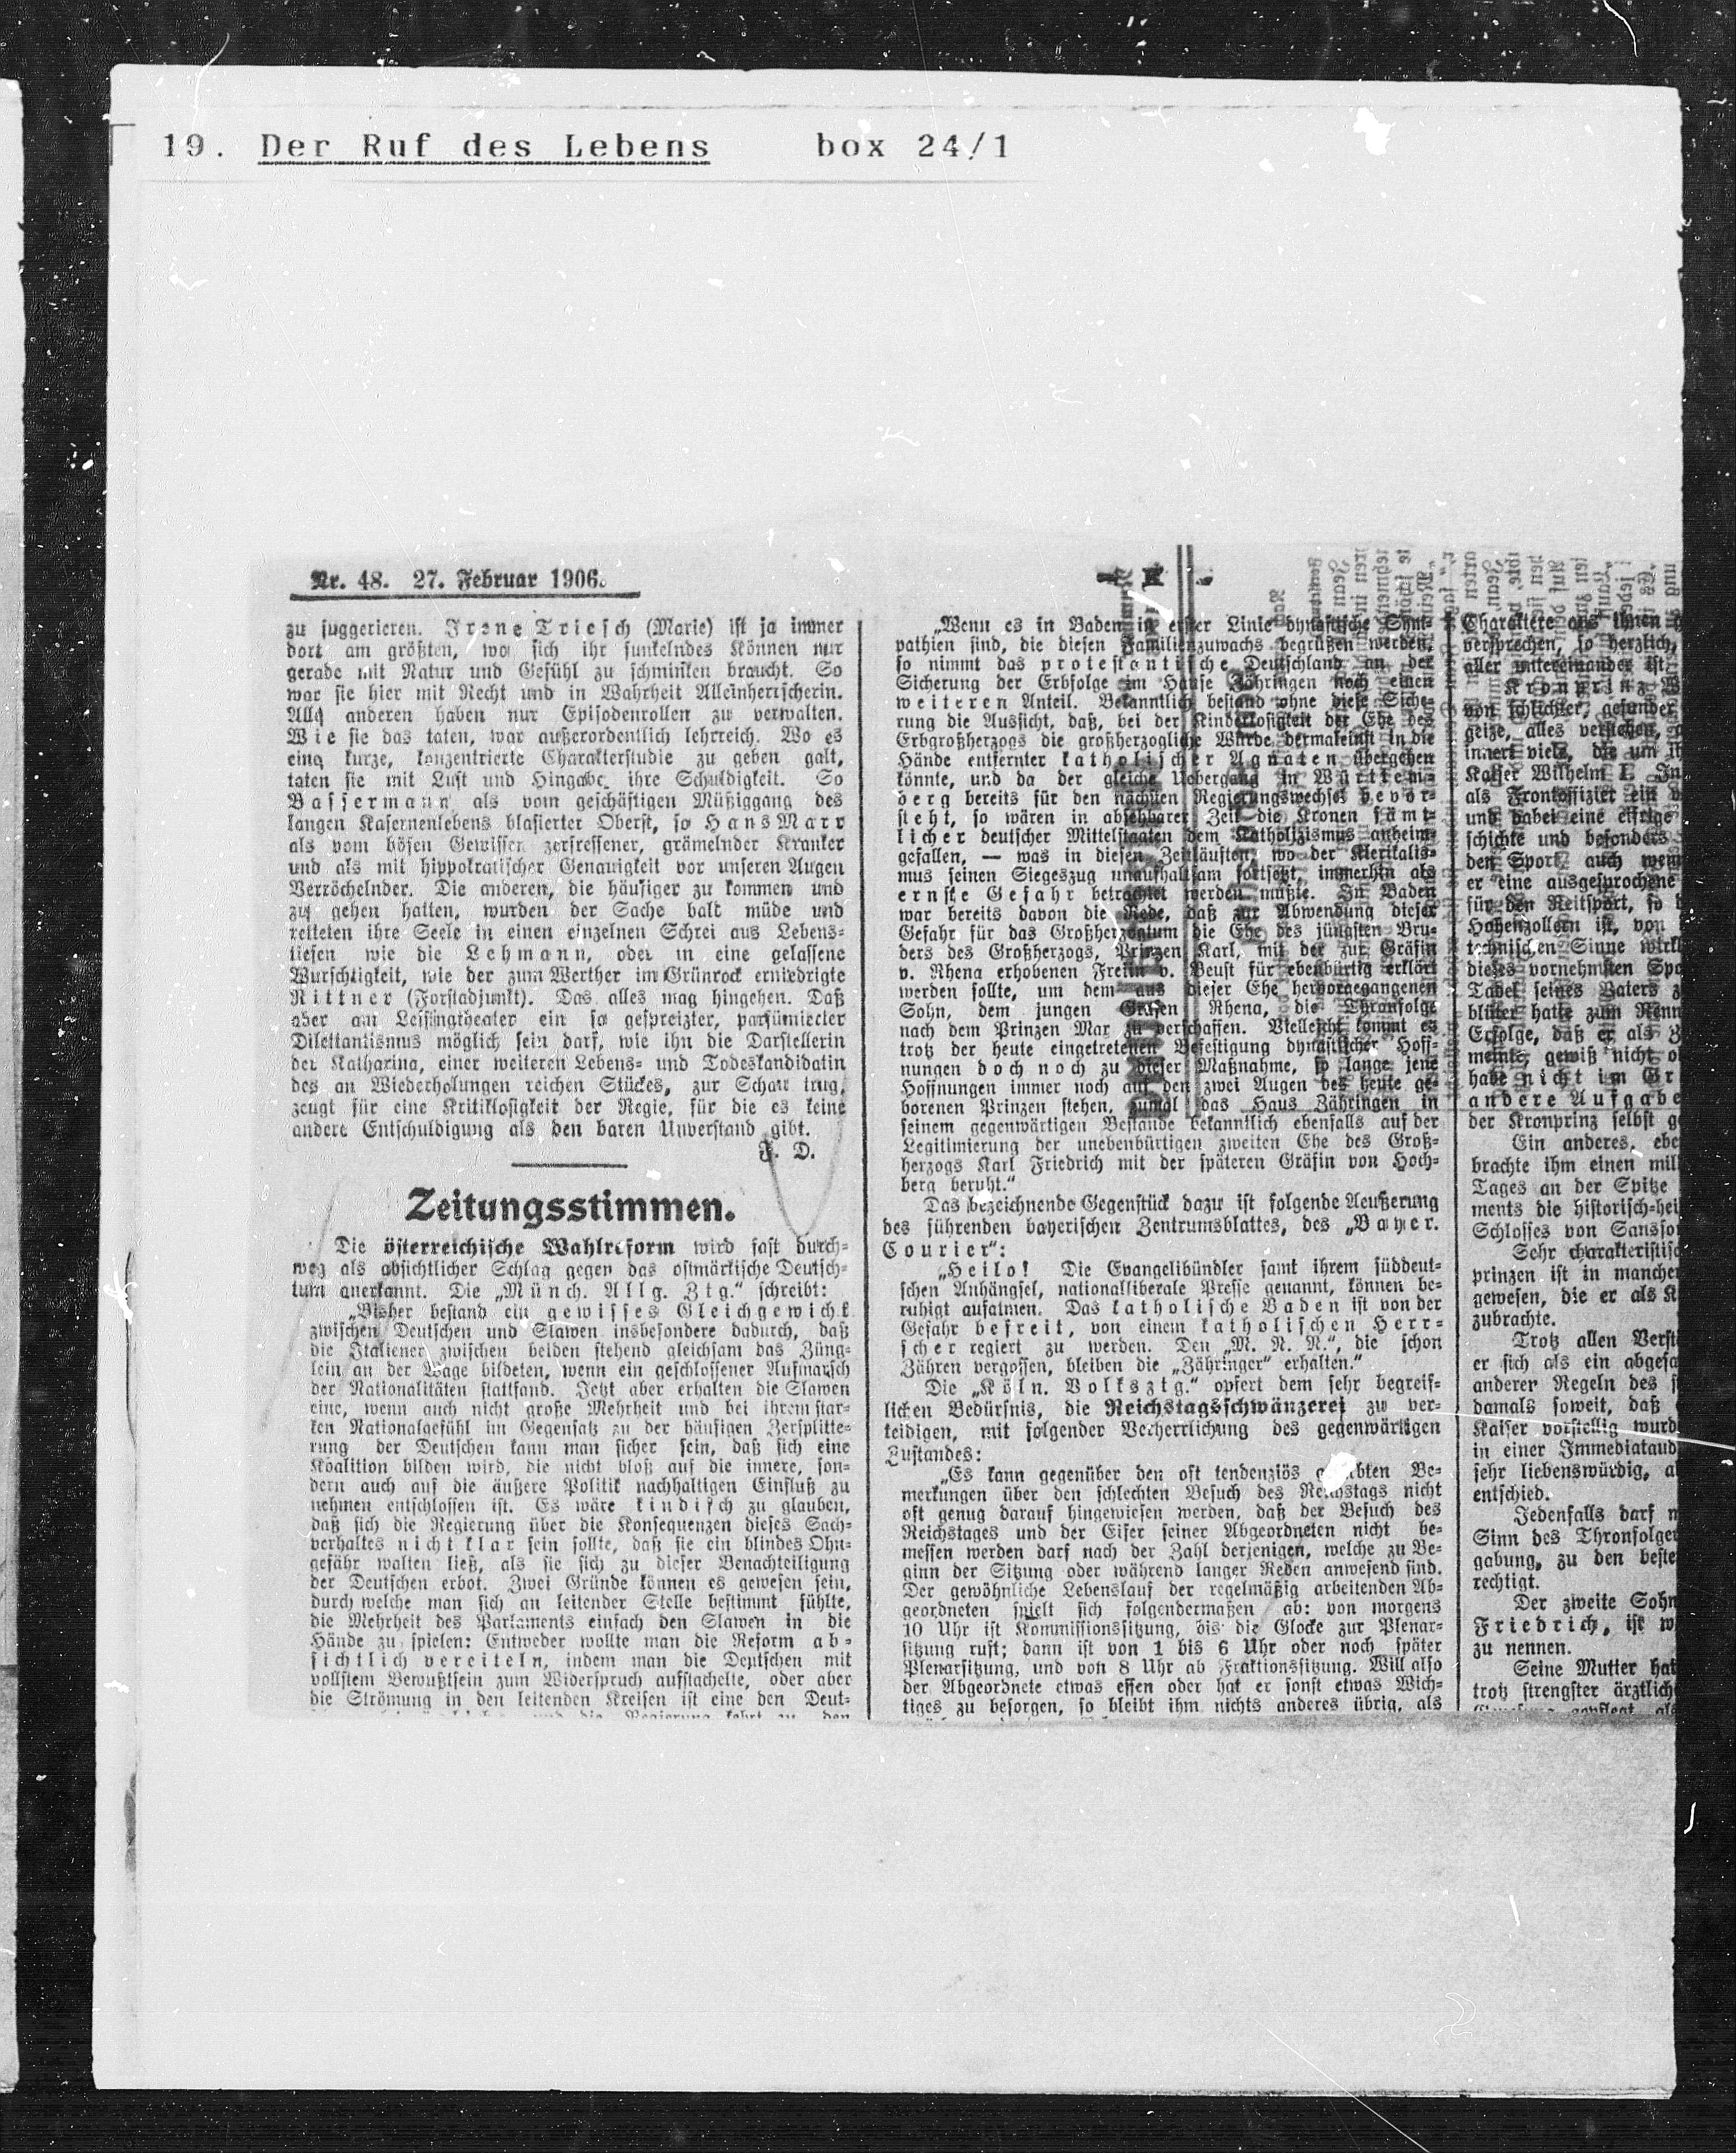 19. Der Ruf des Lebens box 24/1
Nr. 48. 27. Februar 1906.
zu suggerieren. Irene Triesch (Marie) ist ja immer
dort am größten, wo sich ihr funkelndes Können nur
gerade mit Natur und Gefühl zu schminken braucht. So
war sie hier mit Recht und in Wahrheit Alleinherrscherin.
Alle anderen haben nur Episodenrollen zu verwalten.
Wie sie das taten, war außerordentlich lehrreich. Wo es
eine kurze, konzentrierte Charakterstudie zu geben galt,
taten sie mit Lust und Hingabe ihre Schuldigkeit. So
Bassermann als vom geschäftigen Müßiggang des
langen Kasernenlebens blasierter Oberst, so Hans Marr
als vom bösen Gewissen zerfressener, grämelnder Kranker
und als mit hippokratischer Genauigkeit vor unseren Augen
Verröchelnder. Die anderen, die häufiger zu kommen und
zu gehen hatten, wurden der Sache bald müde und
retteten ihre Seele in einen einzelnen Schrei aus Lebens-
tiefen wie die Lehmann, oder in eine gelassene
Wurschtigkeit, wie der zum Werther im Grünrock erniedrigte
Rittner (Forstadjunkt). Das alles mag hingehen. Daß
aber am Lessingtheater ein so gespreizter, parfümierter
Dilettantismus möglich sein darf, wie ihn die Darstellerin
der Katharina, einer weiteren Lebens- und Todeskandidatin
des an Wiederholungen reichen Stückes, zur Schau trug,
zeugt für eine Kritiklosigkeit der Regie, für die es keine
andere Entschuldigung als den baren Unverstand gibt.
F. D.
Zeitungsstimmen.
Die österreichische Wahlreform wird fast durch-
weg als absichtlicher Schlag gegen das ostmärkische Deutsch-
tum anerkannt. Die „Münch. Allg. Ztg.“ schreibt:
„Bisher bestand ein gewisses Gleichgewicht
zwischen Deutschen und Slawen insbesondere dadurch, daß
die Italiener zwischen beiden stehend gleichsam das Züng-
lein an der Wage bildeten, wenn ein geschlossener Aufmarsch
der Nationalitäten stattfand. Jetzt aber erhalten die Slawen
eine, wenn auch nicht große Mehrheit und bei ihrem star-
ken Nationalgefühl im Gegensatz zu der häufigen Zersplitte-
rung der Deutschen kann man sicher sein, daß sich eine
Koalition bilden wird, die nicht bloß auf die innere, son-
dern auch auf die äußere Politik nachhaltigen Einfluß zu
nehmen entschlossen ist. Es wäre kindisch zu glauben,
daß sich die Regierung über die Konsequenzen dieses Sach-
verhaltes nicht klar sein sollte, daß sie ein blindes Ohn-
gefähr walten ließ, als sie sich zu dieser Benachteiligung
der Deutschen erbot. Zwei Gründe können es gewesen sein,
durch welche man sich an leitender Stelle bestimmt fühlte,
die Mehrheit des Parlaments einfach den Slawen in die
Hände zu spielen: Entweder wollte man die Reform ab-
sichtlich vereiteln, indem man die Deutschen mit
vollstem Bewußtsein zum Widerspruch aufstachelte, oder aber
die Strömung in den leitenden Kreisen ist eine den Deut-
„Wenn es in Baden in erster Linie dynastische Sym-
pathien sind, die diesen Familienzuwachs begrüßen werden,
so nimmt das protestantische Deutschland an der
Sicherung der Erbfolge im Hause Zähringen noch einen
weiteren Anteil. Bekanntlich bestand ohne diese Siche-
rung die Aussicht, daß, bei der Kinderlosigkeit der Ehe des
Erbgroßherzogs die großherzogliche Würde dermaleinst in die
Hände entfernter katholischer Agnaten übergehen
könnte, und da der gleiche Uebergang in Württem-
berg bereits für den nächsten Regierungswechsel bevor-
steht, so wären in absehbarer Zeit die Kronen sämt-
licher deutscher Mittelstaaten dem Katholizismus anheim-
gefallen, — was in diesen Zeitläuften, wo der Klerikalis-
mus seinen Siegeszug unaufhaltsam fortsetzt, immerhin als
ernste Gefahr betrachtet werden mußte. In Baden
war bereits davon die Rede, daß zur Abwendung dieser
Gefahr für das Großherzogtum die Ehe des jüngsten Bru-
ders des Großherzogs, Prinzen Karl, mit der zur Gräfin
v. Rhena erhobenen Freiin v. Beust für ebenbürtig erklärt
werden sollte, um dem aus dieser Ehe hervorgegangenen
Sohn, dem jungen Grafen Rhena, die Thronfolge
nach dem Prinzen Max zu verschaffen. Vielleicht kommt es
trotz der heute eingetretenen Befestigung dynastischer Hoff-
nungen doch noch zu dieser Maßnahme, so lange jene
Hoffnungen immer noch auf den zwei Augen des heute ge-
borenen Prinzen stehen, zumal das Haus Zähringen in
seinem gegenwärtigen Bestande bekanntlich ebenfalls auf der
Legitimierung der unebenbürtigen zweiten Ehe des Groß-
herzogs Karl Friedrich mit der späteren Gräfin von Hoch-
berg beruht.“
Das bezeichnende Gegenstück dazu ist folgende Aeußerung
des führenden bayerischen Zentrumsblattes, des „Bayer.
Courier“:
„Heilo! Die Evangelibündler samt ihrem süddeut-
schen Anhängsel, nationalliberale Presse genannt, können be-
ruhigt aufatmen. Das katholische Baden ist von der
Gefahr befreit, von einem katholischen Herr-
scher regiert zu werden. Den „M. N. N.“, die schon
Zähren vergossen, bleiben die „Zähringer“ erhalten.“
Die „Köln. Volksztg.“ opfert dem sehr begreif-
lichen Bedürfnis, die Reichstagsschwänzerei zu ver-
teidigen, mit folgender Verherrlichung des gegenwärtigen
Zustandes:
„Es kann gegenüber den oft tendenziös Be-
merkungen über den schlechten Besuch des Reichstags nicht
oft genug darauf hingewiesen werden, daß der Besuch des
Reichstages und der Eifer seiner Abgeordneten nicht be-
messen werden darf nach der Zahl derjenigen, welche zu Be-
ginn der Sitzung oder während langer Reden anwesend sind.
Der gewöhnliche Lebenslauf der regelmäßig arbeitenden Ab-
geordneten spielt sich folgendermaßen ab: von morgens
10 Uhr ist Kommissionssitzung, bis die Glocke zur Plenar-
sitzung ruft; dann ist von 1 bis 6 Uhr oder noch später
Plenarsitzung, und von 8 Uhr ab Fraktionssitzung. Will also
der Abgeordnete etwas essen oder hat er sonst etwas Wich-
tiges zu besorgen, so bleibt ihm nichts anderes übrig, als
Charaktere aus ihnen
versprechen, so herzlich,
aller untereinander ist.
Kronprinz
von schlichter, gesunder
geize, alles verstehen,
innert viele, die um
Kaiser Wilhelm I. In
als Frontoffizier ein
und dabei eine eifrige
schichte und besonders
den Sport, auch wenn
er eine ausgesprochene
für den Reitsport, so
Hohenzollern ist, von
technischen Sinne wirkl
dieses vornehmsten Spo
Tadel seines Vaters
blüter hatte zum Renn
Erfolge, daß er als
meinte, gewiß nicht
habe nicht im Gr
andere Aufgabe
der Kronprinz selbst
Ein anderes, ebe
brachte ihm einen mil
Tages an der Spitze
ments die historisch-hei
Schlosses von Sanssou
Sehr charakteristisch
prinzen ist in mancher
gewesen, die er als K
zubrachte.
Trotz allen Verst
er sich als ein abgesa
anderer Regeln des
damals soweit, daß
Kaiser vorstellig wurd
in einer Immediataud
sehr liebenswürdig, a
entschied.
Jedenfalls darf m
Sinn des Thronfolger
gabung, zu den beste
rechtigt.
Der zweite Sohn
Friedrich, ist w
zu nennen.
Seine Mutter hat
trotz strengster ärztlich